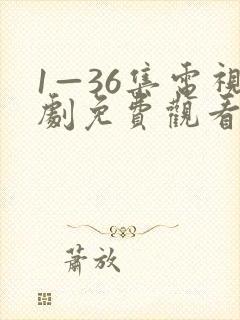 1—36集電視
劇免費觀看
蕭放